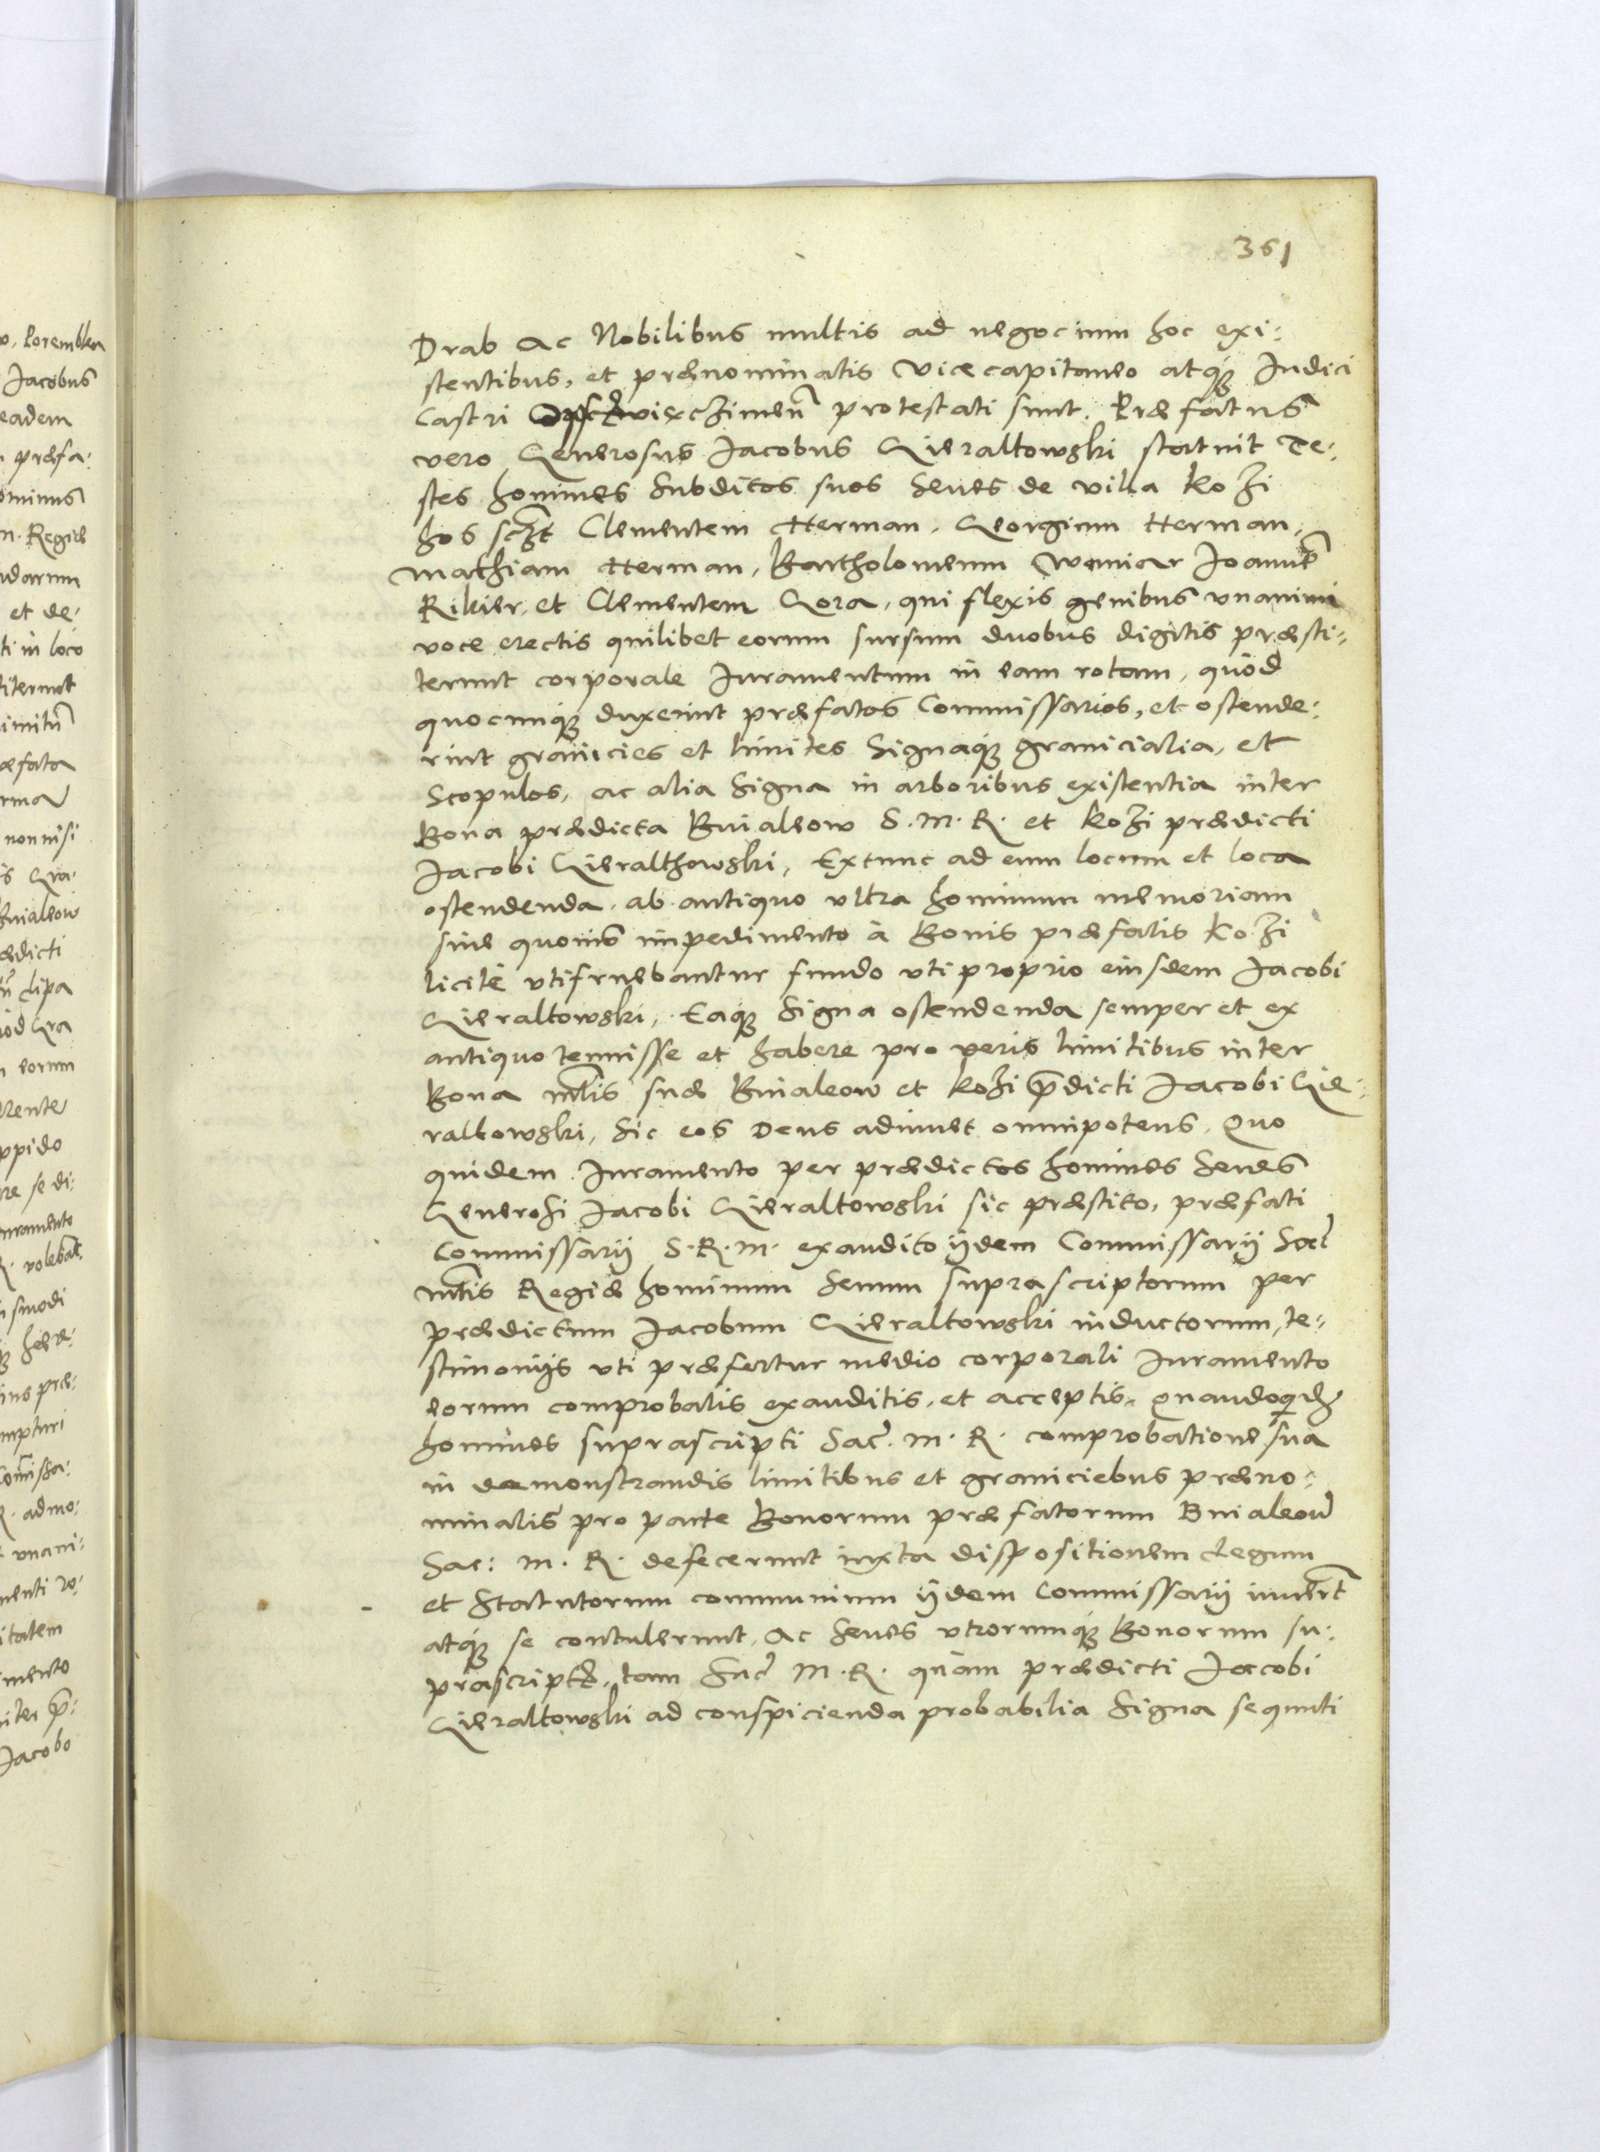 361
Drab ac Nobilibus multis ad negocium hoc exi:
stentibus, et prænominatis Vicecapitaneo atq̃ Iudici
Castri protestati sunt. Præfatus
vero Generosus Jacobus Gieraltowski statuit Te:
stes homines subditos suos senes de villa Kozi
hos sczt Clementem Herman, Georgium Herman,
Mathiam Herman, Bartholomeum Woniar Joannẽ
Rikier, et Clementem Gora, qui flexis genibus unanimi
voce erectis quilibet eorum sursum duobus digitis præsti:
terunt corporale Juramentum in eam rotam, quòd
quocunq̃ duxerint præfatos Commissarios, et ostende:
rint granicies et limites signaq̃ granicialia, et
Scopulos, ac alia signa in arboribus existentia inter
Bona prædicta Buialeow S. M. R. et Kozi prædicti
Jacobi Gieralthowski, Extunc ad eum locum et loca
ostendenda ab antiquo ultra hominum memoriam
sine quovis impedimento à Bonis præfatis Kozi
licitè utifruebantur fundo uti proprio eiusdem Jacobi
Gieraltowski, Eaq̃ signa ostendenda semper et ex
antiquo tenuisse et habere pro veris limitibus inter
Bona mtis suæ Buialeow et Kozi p̃dicti Jacobi Gie:
raltowski, sic eos Deus adiuvet omnipotens. Quo
quidem Juramento per prædictos homines senes
Generosi Jacobi Gieraltowski sic præstito, præfati
Commissarij S. R. M. exaudito ijdem Commissarij Sac̃
mtis Regiæ hominum senum suprascriptorum per
prædictum Jacobum Gieraltowski inductorum, te:
stimonijs uti præfertur medio corporali Juramento
eorum comprobatis exauditis, et acceptis, quandoqid̃
homines suprascripti Sac̃. M. R. comprobatione sua
in demonstrandis limitibus et graniciebus præno:
minatis pro parte Bonorum præfatorum Buialeow
Sac: M. R. defecerunt iuxta dispositionem Legum
et Statutorum communium ijdem Commissarij
atq̃ se contulerunt, ac senes utrorumq̃ Bonorum su:
prascript, tam Sac̃ M. R. quàm prædicti Jacobi
Gieraltowski ad conspicienda probabilia signa sequuti